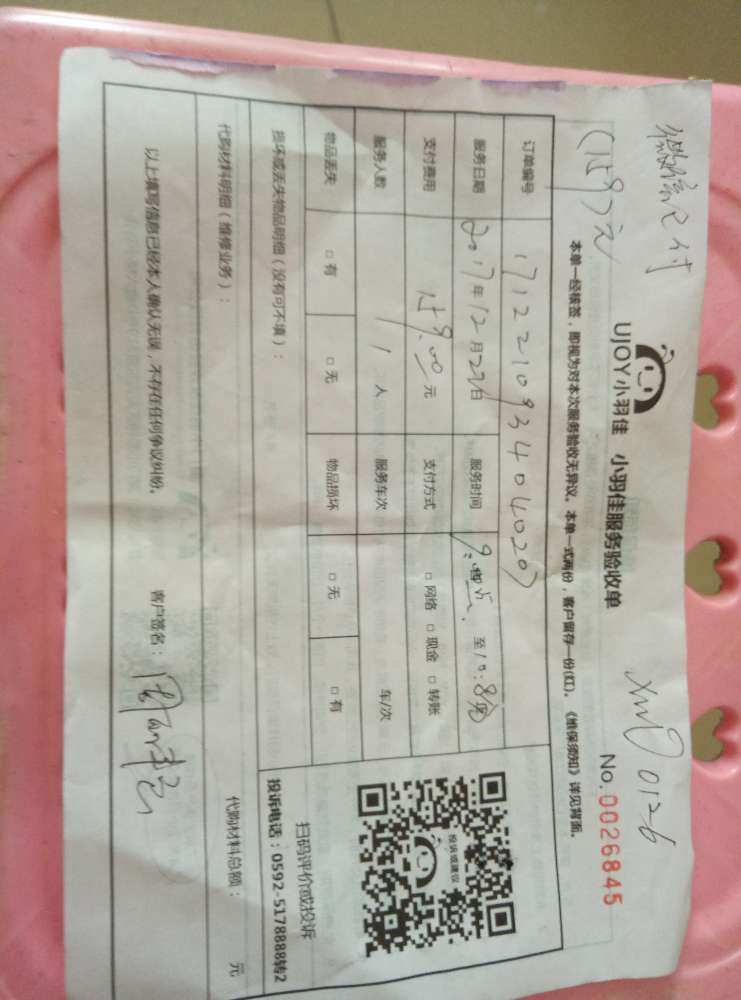 微信支付
(159元)
XMD 0126
UJOY小羽佳 小羽佳服务验收单
No. 0026845
本单一经核签，即视为对本次服务验收无异议。本单一式两份，客户留存一份(红)。《维保须知》详见背面。
订单编号 1712210934040207
服务日期 2017年12月22日 服务时间 至10:
支付费用 159.00元 支付方式 □ 网络 □ 现金 □ 转账
服务人数 1 人 服务车次 车/次
物品丢失 □ 有 □ 无 物品损坏 □ 无 □ 有
投诉或建议
扫码评价或投诉
投诉电话：0592-5178888转2
损坏或丢失物品明细（没有可不填）：
代购材料明细（维修业务）：
代购材料总额： 元
以上填写信息已经本人确认无误，不存在任何争议纠纷。 客户签名：